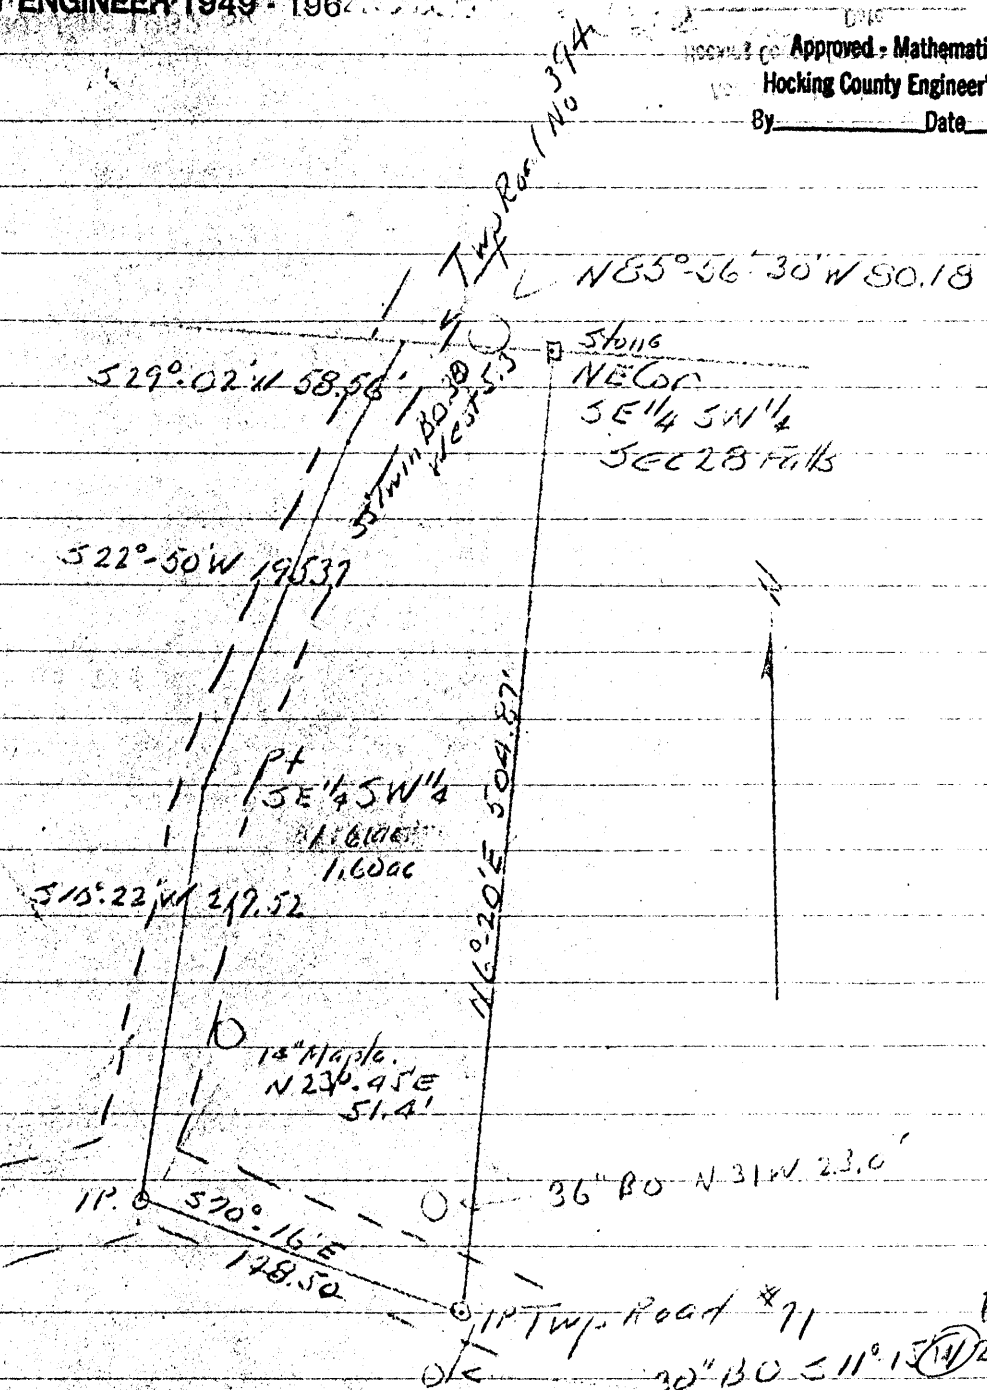 ENGINEER 1949 - 196
Date
Approved - Mathemati
Hocking County Engineer'
By Date
Twp Road No 394
N85°-56'-30"W 80.18
Stone
NE Cor
SE 1/4 SW 1/4
SEC 28 Falls
S29°-02'W 58.56'
Twin BO
West 5.3
S22°-50'W 195.37
N6°-20'E 504.87'
N
Pt
SE 1/4 SW 1/4
1.60ac
22'W 217.52
Maple
N 23°-45'E
51.4'
36" BO N 31 W 23.0'
IP.
S70°-16'E
178.50
IP Twp. Road #71
30" BO S 11°-15